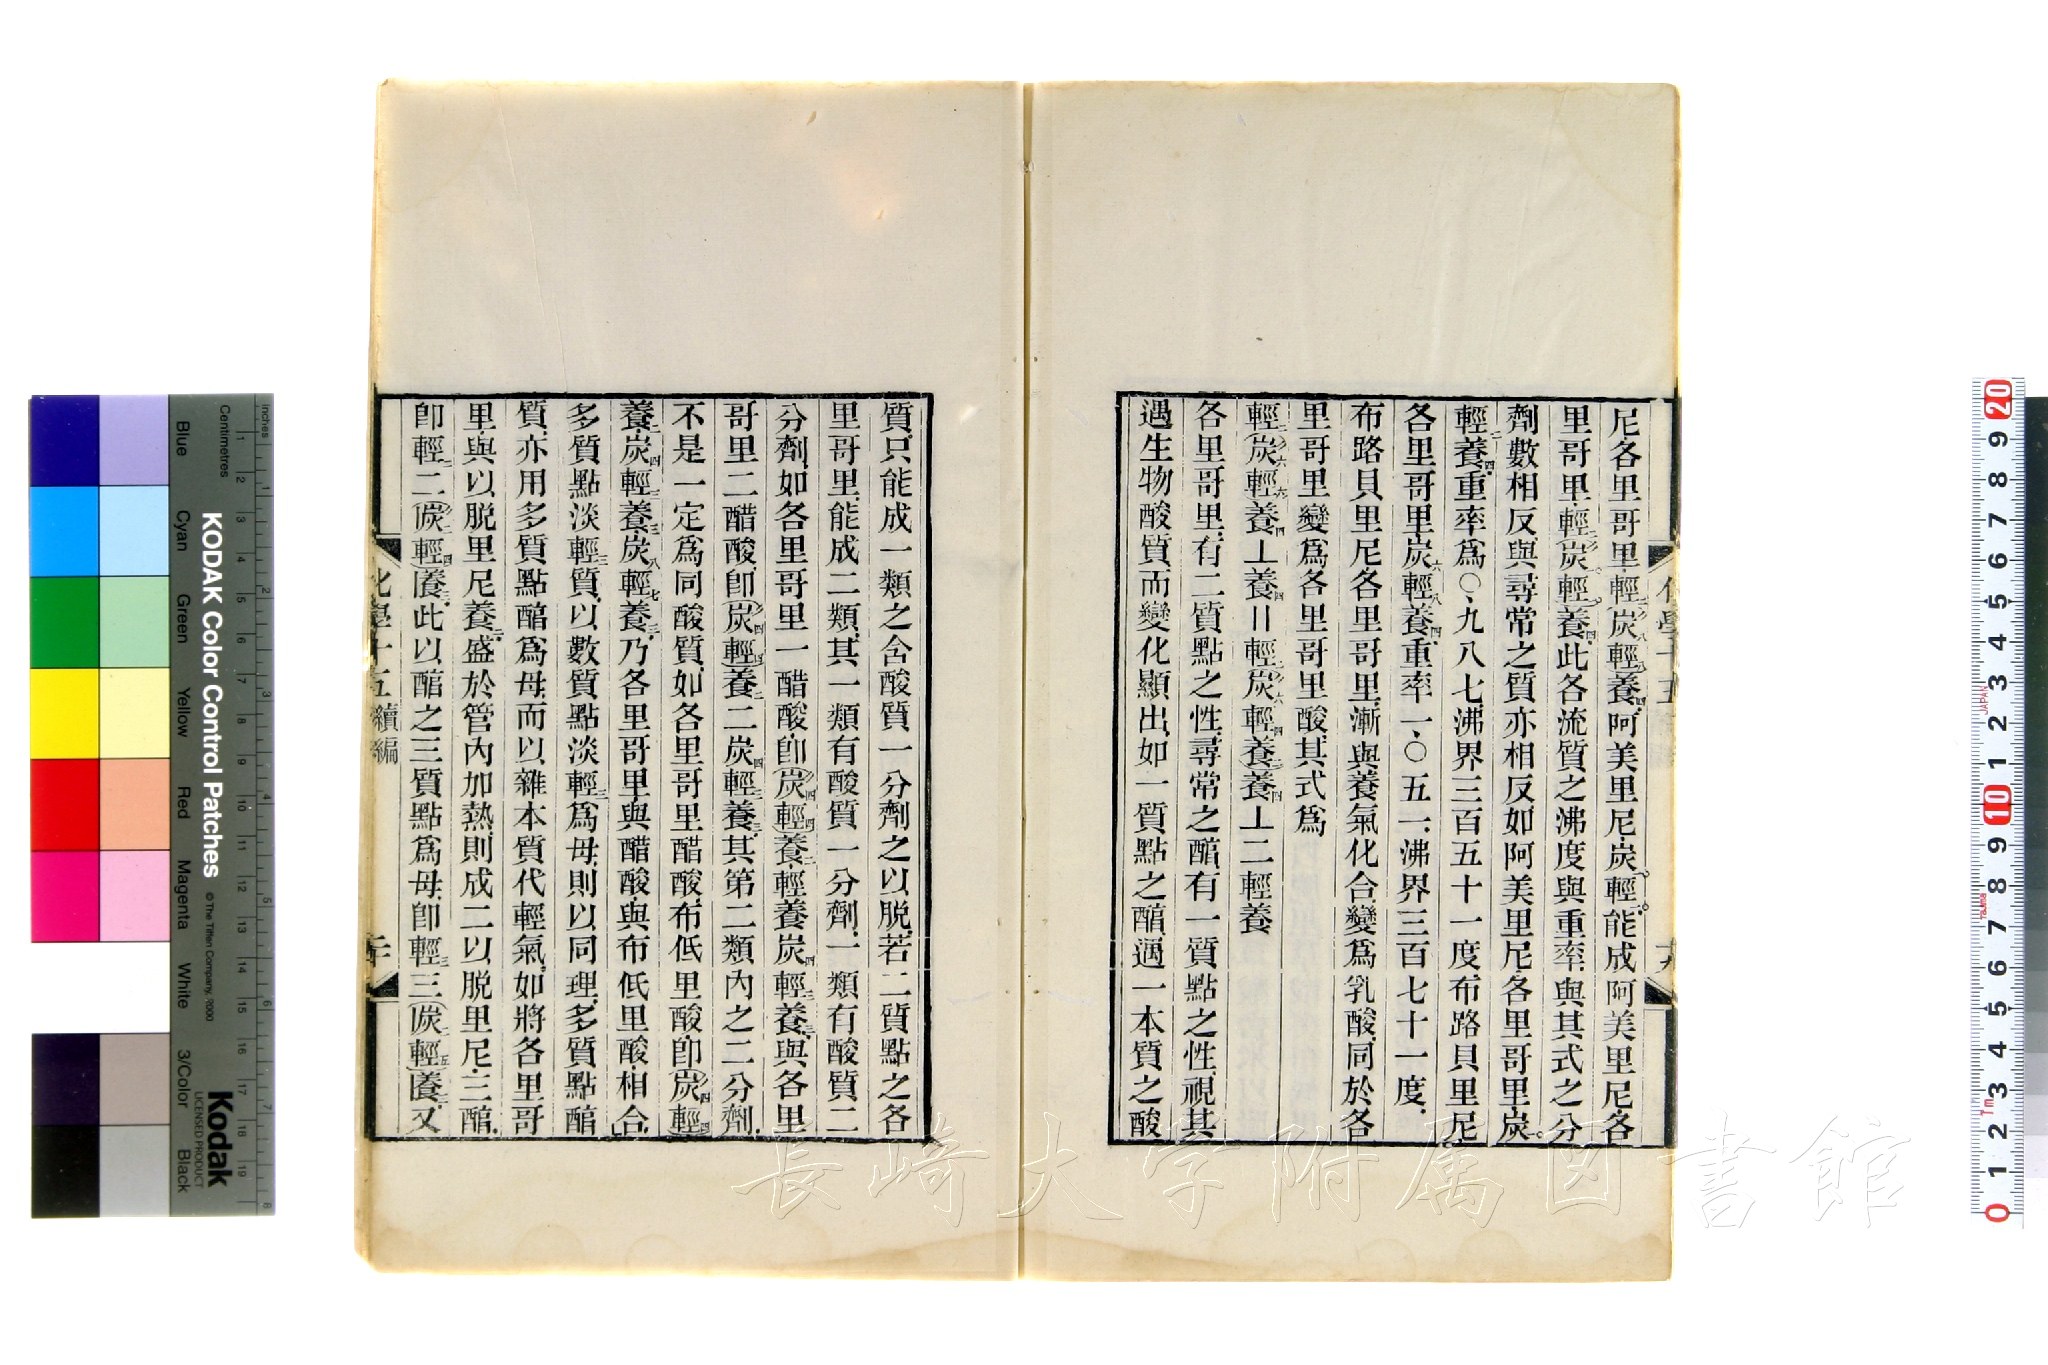 尼各里哥里輕二(炭八輕八)養四阿美里尼炭一〇輕一〇能成阿美里尼各
里哥里輕二(炭一〇輕一〇)養四此各流質之沸度與重率與其式之分
劑數相反與尋常之質亦相反如阿美里尼各里哥里炭一〇
輕一二養四重率爲〇、九八七沸界三百五十一度布路貝里尼
各里哥里炭六輕八養四重率一、〇五一沸界三百七十一度
布路貝里尼各里哥里漸與養氣化合變爲乳酸同於各
里哥里變爲各里哥里酸其式爲
輕二(炭六輕六)養四⊥養四〢輕二(炭六輕四養二)養四⊥二輕養
各里哥里有二質點之性尋常之醕有一質點之性視其
遇生物酸質而變化顯出如一質點之醕遇一本質之酸
質只能成一類之含酸質一分劑之以脫若二質點之各
里哥里能成二類其一類有酸質一分劑一類有酸質二
分劑如各里哥里一醋酸卽(炭四輕四)養二輕養炭四輕三養三與各里
哥里二醋酸卽(炭四輕四)養二二炭四輕三養三其第二類內之二分劑
不是一定爲同酸質如各里哥里醋酸布低里酸卽(炭四輕四)
養二炭四輕三養三炭八輕七養三乃各里哥里與醋酸與布低里酸相合
多質點淡輕三質以數質點淡輕三爲母則以同理多質點醕
質亦用多質點醕爲母而以雜本質代輕氣如將各里哥
里與以脫里尼養二盛於管內加熱則成二以脫里尼三醕
卽輕二二(炭四輕四)養六此以醕之三質點爲母卽輕三三(炭四輕五)養六又
化學十五 續編
十九
化學十五 續編
二十
KODAK Color Control Patches
© The Tiffen Company, 2000
Kodak
LICENSED PRODUCT
Inches
Centimetres
Blue
Cyan
Green
Yellow
Red
Magenta
White
3/Color
Black
JAPAN
Tajima
長崎大学附属図書館